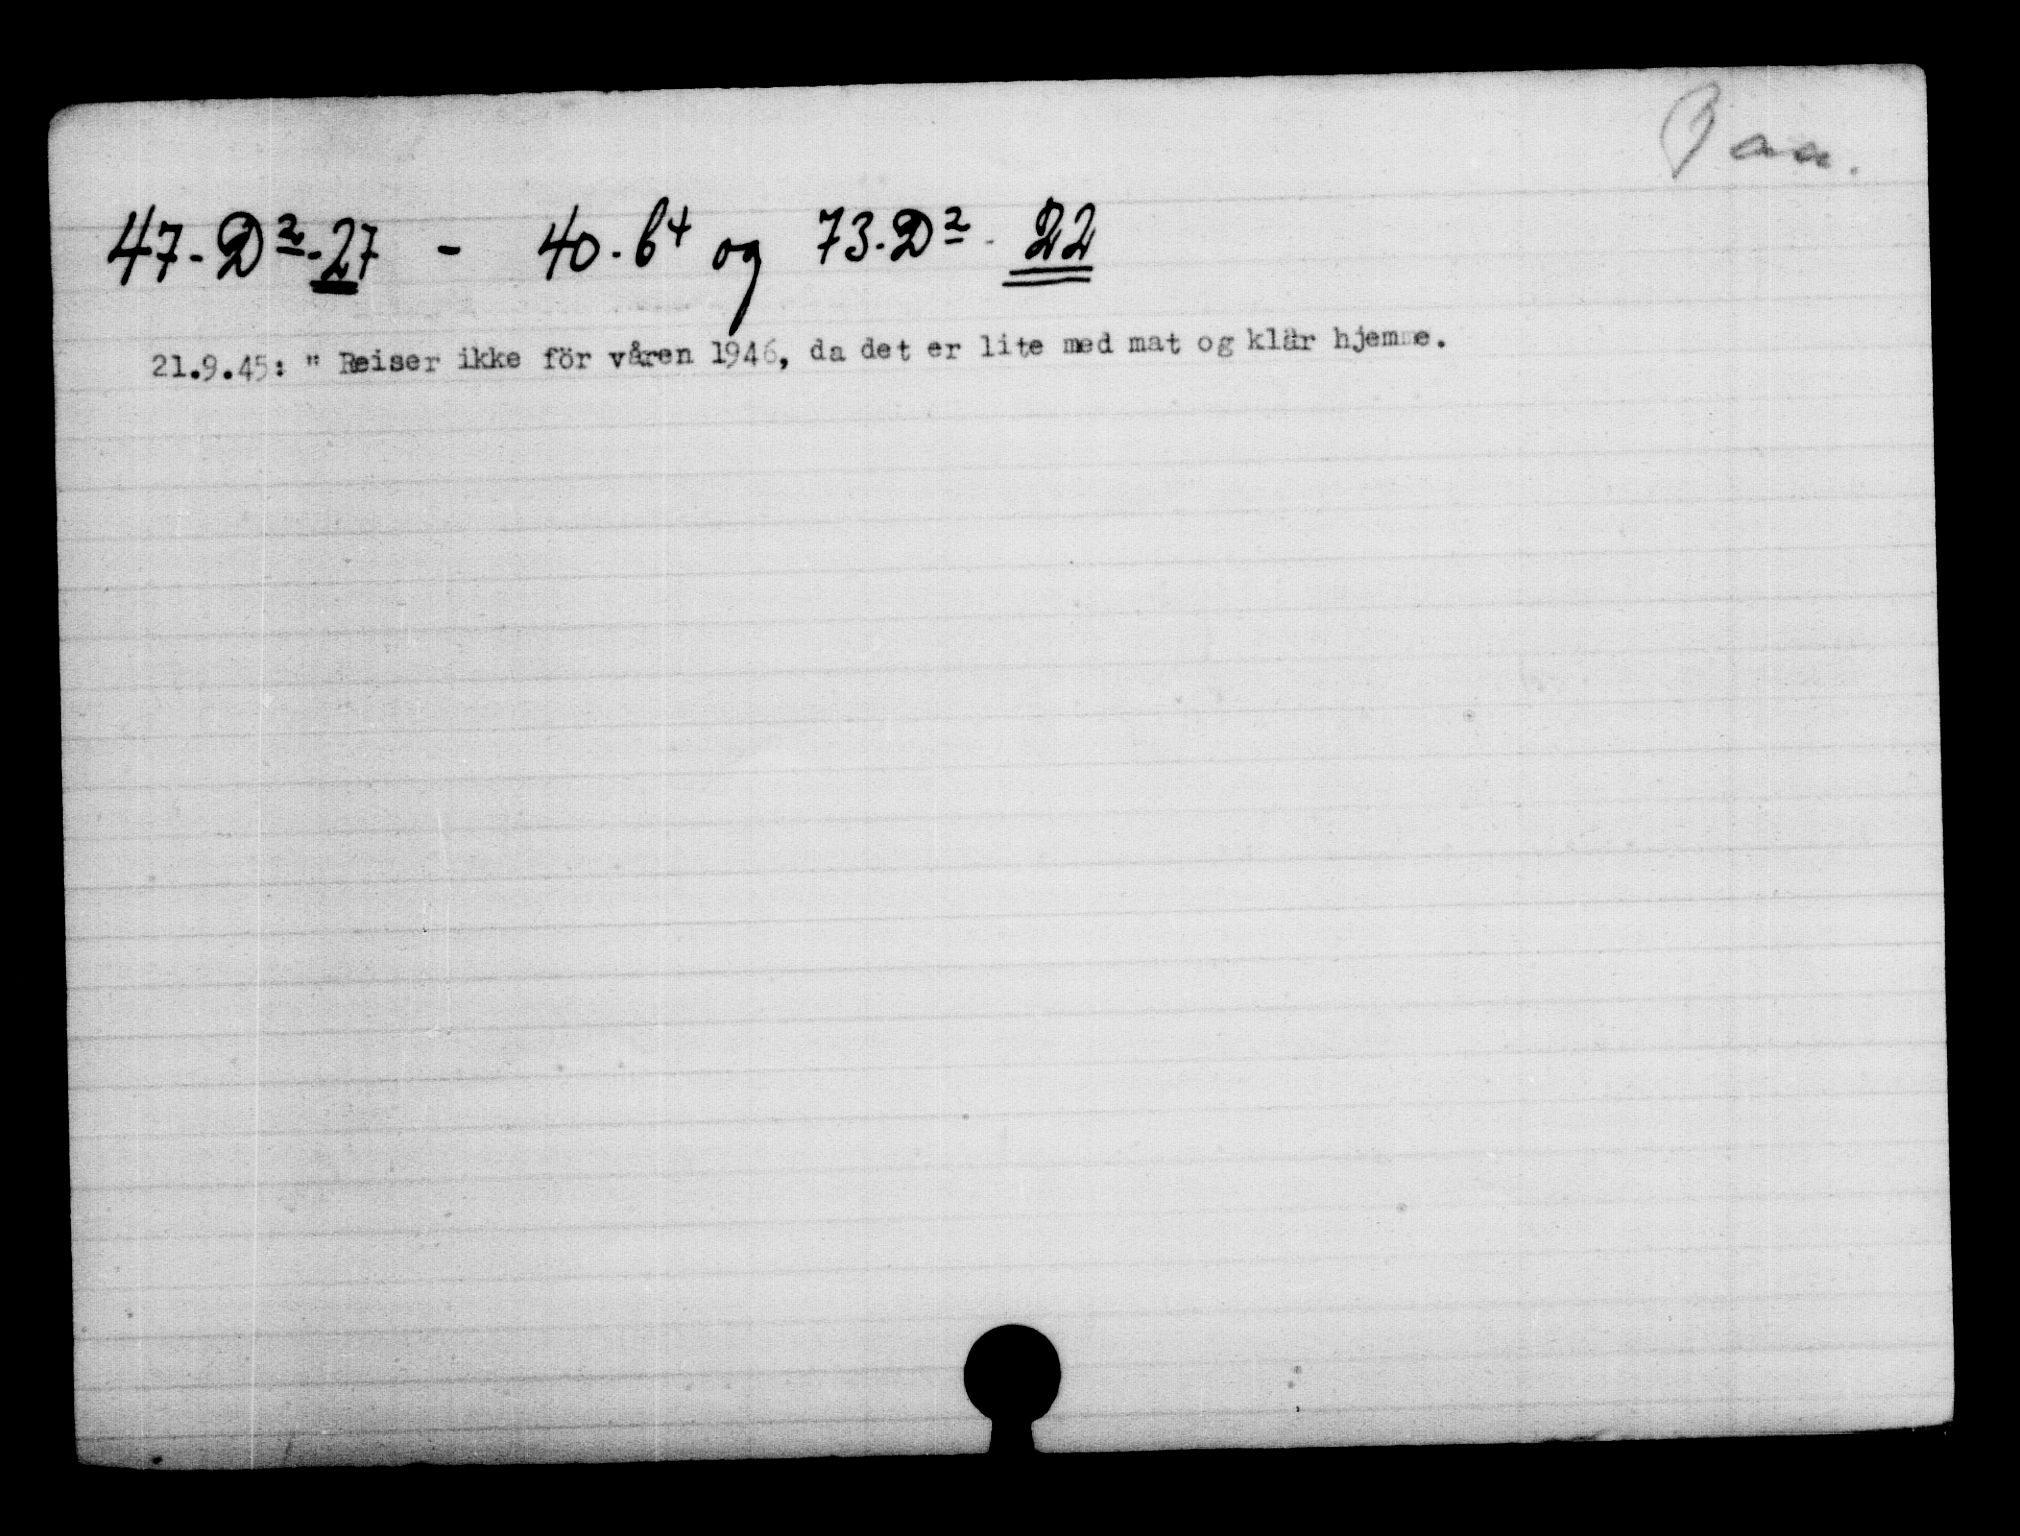 47-D²-27 - 40.b⁴ og 73.D²- 22
21.9.45: " Reiser ikke för våren 1946, da det er lite med mat og klär hjemme.